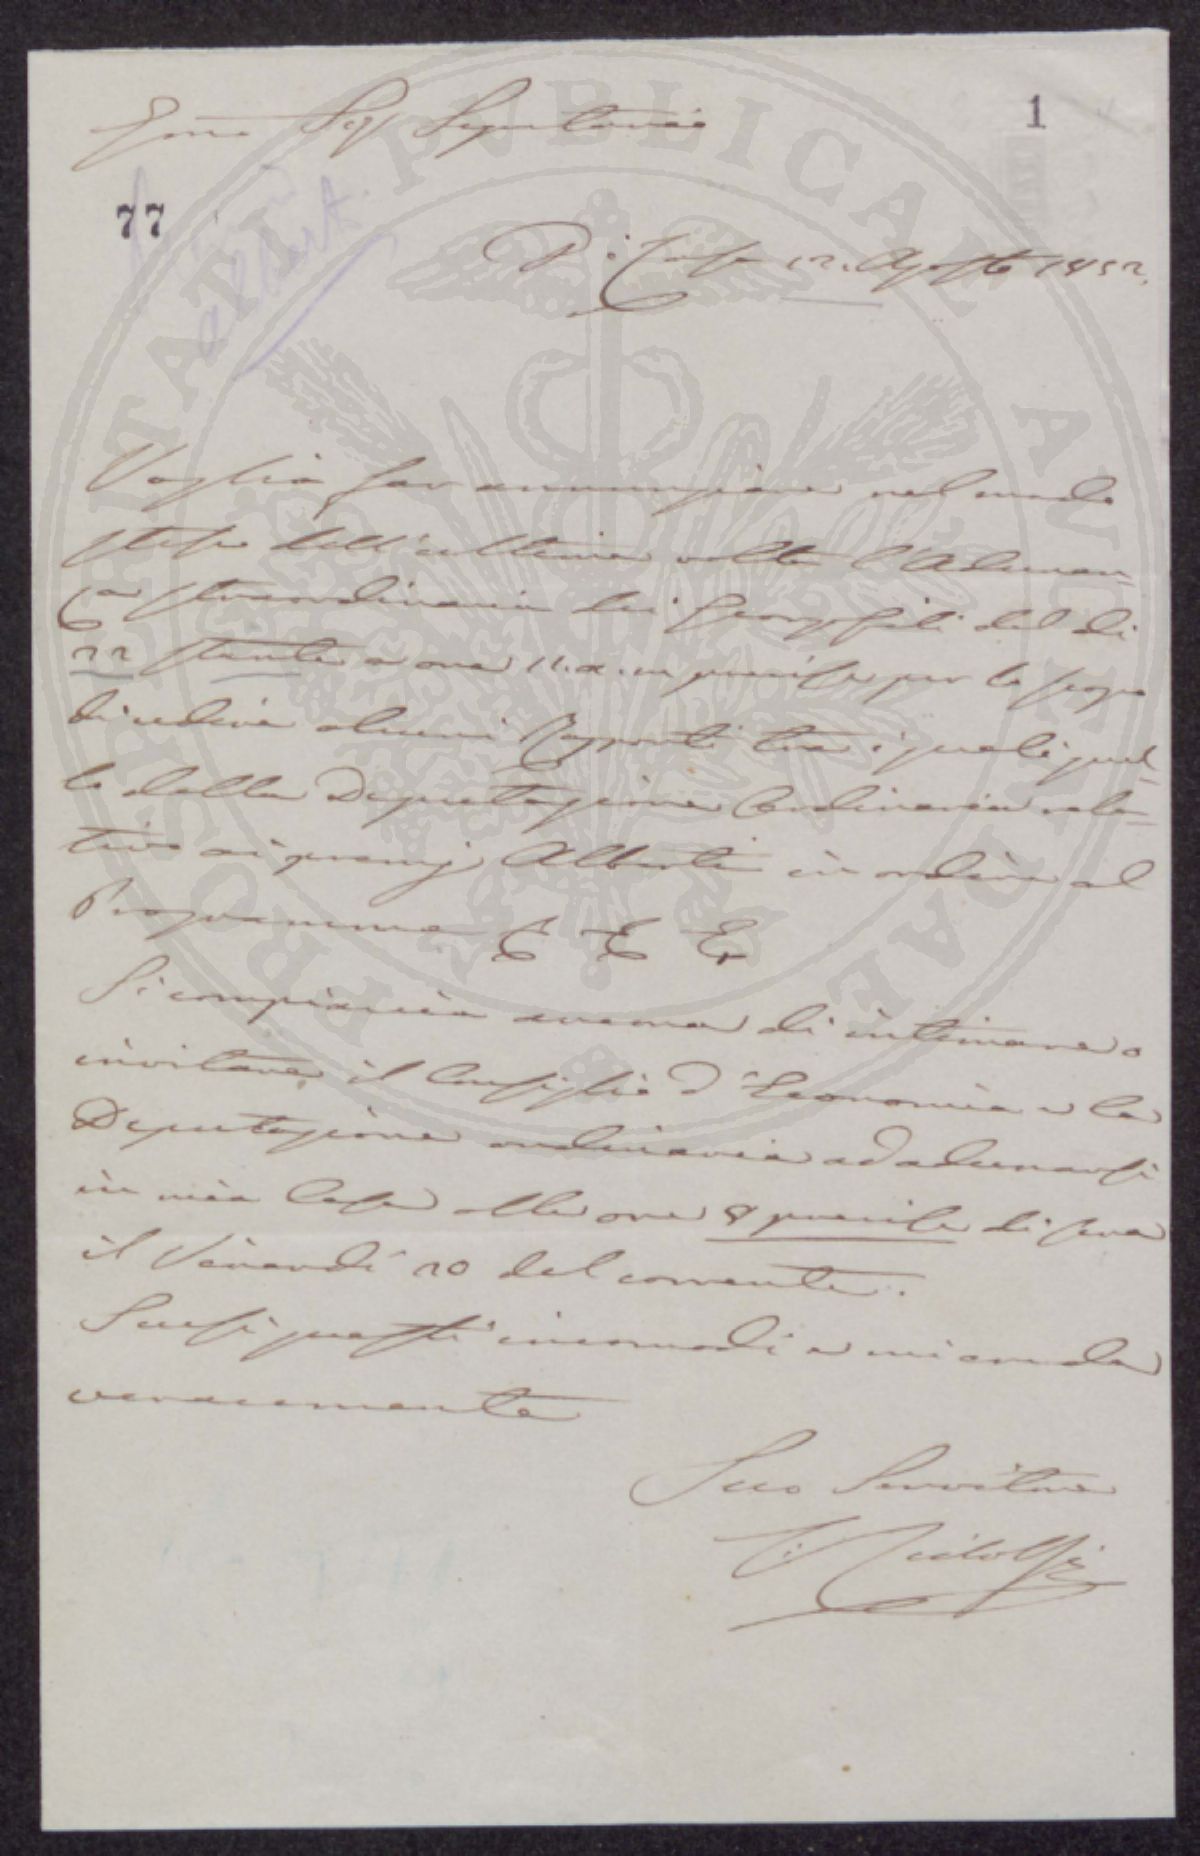 1
Sig. Segretario
77
Premio Alberti
Di Casa 12. Agosto 1852.
Voglia far annunziare nel modo
stesso dell'ultima volta l'Adunan-
za straordinaria dei Georgofili del dì
22 stante a ore 11. a. m. precise per lo scopo
di udire alcuni Rapporti tra i quali quel-
lo dalla Deputazione Ordinaria rela-
tivo ai premj Alberti in ordine al
Programma
Si compiacia ancora di intimare o
invitare il Consiglio d'Economia e la
Deputazione ordinaria ad adunarsi
in mia Casa alle ore 8 precise di sera
il Venerdì 20 del corrente.
Scusi questi incomodi e mi creda
veracemente
Suo Servitore
C. Ridolfi
PUBLICAE AUGENDAE PROSPERITATI